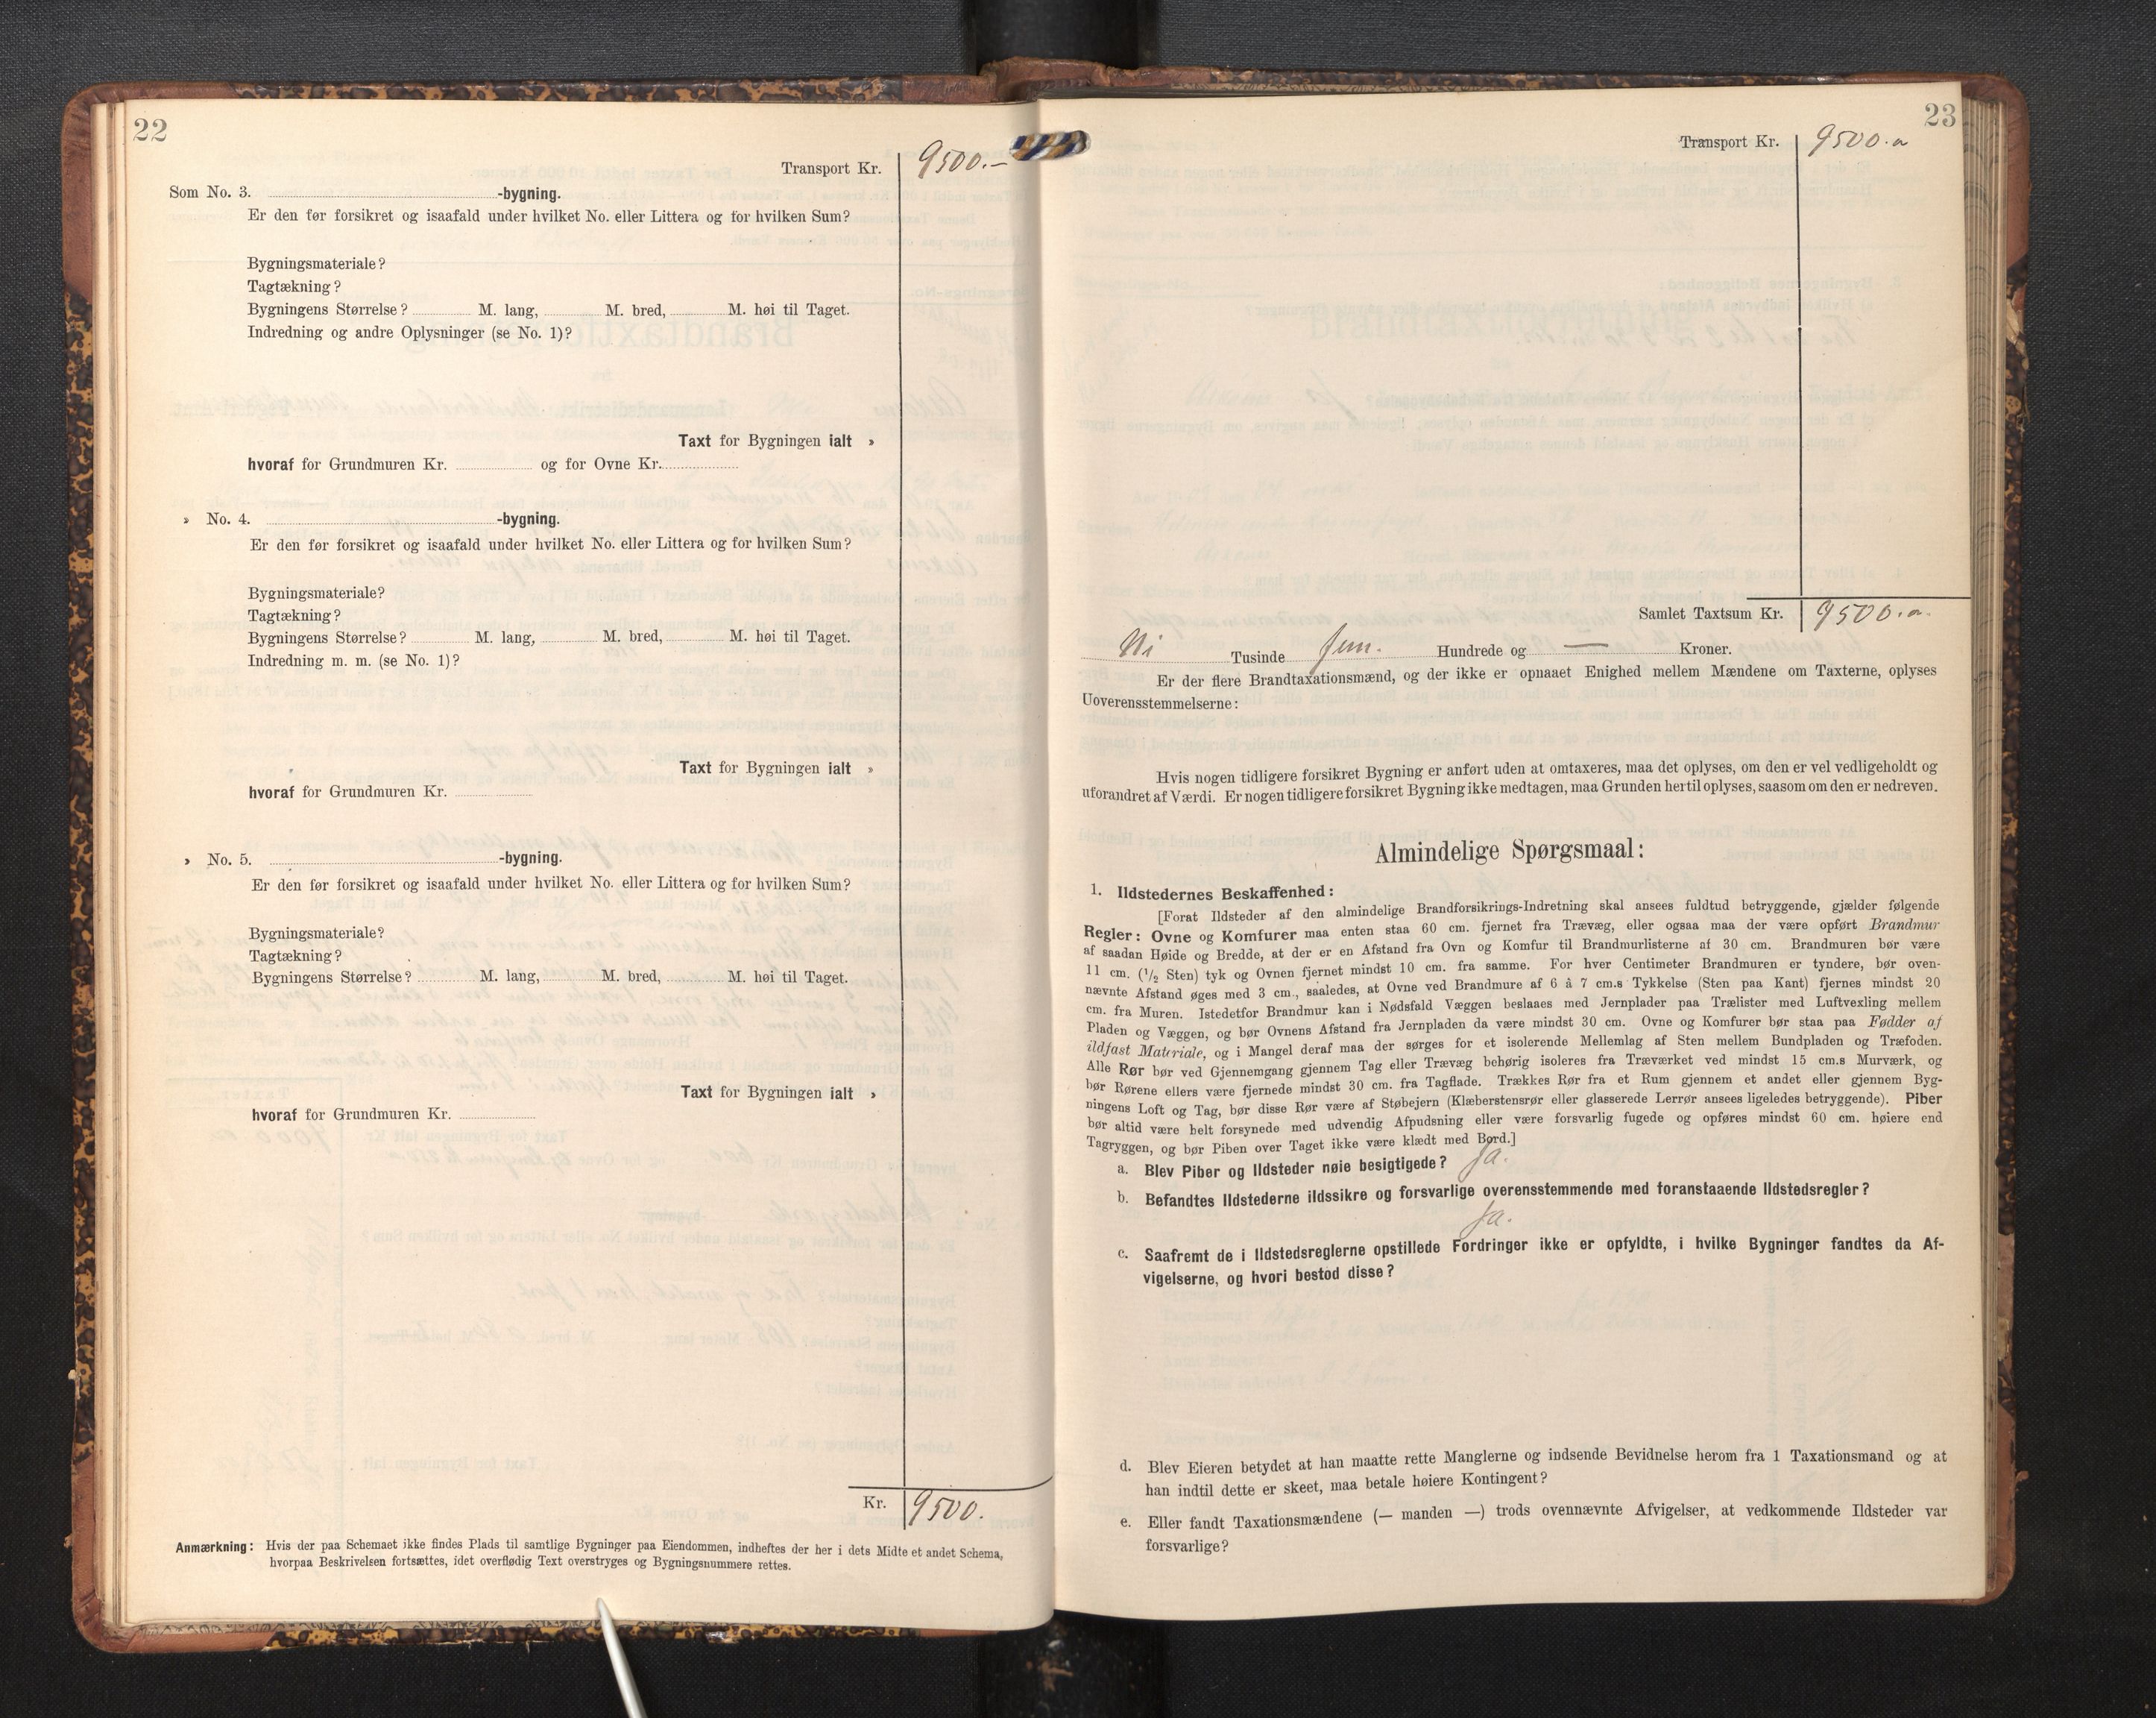 22
Transport Kr. 9500.–
Som No. 3. -bygning.
Er den før forsikret og isaafald under hvilket No. eller Littera og for hvilken Sum?
Bygningsmateriale?
Tagtækning?
Bygningens Størrelse? M. lang, M. bred, M. høi til Taget.
Indredning og andre Oplysninger (se No. 1)?
Taxt for Bygningen ialt »
hvoraf for Grundmuren Kr. og for Ovne Kr.
» No. 4. -bygning.
Er den før forsikret og isaafald under hvilket No. eller Littera og for hvilken Sum?
Bygningsmateriale?
Tagtækning?
Bygningens Størrelse? M. lang, M. bred, M. høi til Taget.
Indredning m. m. (se No. 1)?
Taxt for Bygningen ialt »
hvoraf for Grundmuren Kr.
» No. 5. -bygning.
Er den før forsikret og isaafald under hvilket No. eller Littera og for hvilken Sum?
Bygningsmateriale?
Tagtækning?
Bygningens Størrelse? M. lang, M. bred, M. høi til Taget.
Taxt for Bygningen ialt »
hvoraf for Grundmuren Kr.
Kr. 9500.
Anmærkning: Hvis der paa Schemaet ikke findes Plads til samtlige Bygninger paa Eiendommen, indheftes der her i dets Midte et andet Schema,
hvorpaa Beskrivelsen fortsættes, idet overflødig Text overstryges og Bygningsnummere rettes.
23
Transport Kr. 9500.
Samlet Taxtsum Kr. 9500.
Ni Tusinde fem. Hundrede og — Kroner.
Er der flere Brandtaxationsmænd, og der ikke er opnaaet Enighed mellem Mændene om Taxterne, oplyses
Uoverensstemmelserne:
Hvis nogen tidligere forsikret Bygning er anført uden at omtaxeres, maa det oplyses, om den er vel vedligeholdt og
uforandret af Værdi. Er nogen tidligere forsikret Bygning ikke medtagen, maa Grunden hertil oplyses, saasom om den er nedreven.
Almindelige Spørgsmaal:
1. Ildstedernes Beskaffenhed:
[Forat Ildsteder af den almindelige Brandforsikrings-Indretning skal ansees fuldtud betryggende, gjælder følgende
Regler: Ovne og Komfurer maa enten staa 60 cm. fjernet fra Trævæg, eller ogsaa maa der være opført Brandmur
af saadan Høide og Bredde, at der er en Afstand fra Ovn og Komfur til Brandmurlisterne af 30 cm. Brandmuren bør være
11 cm. (1/2 Sten) tyk og Ovnen fjernet mindst 10 cm. fra samme. For hver Centimeter Brandmuren er tyndere, bør oven-
nævnte Afstand øges med 3 cm., saaledes, at Ovne ved Brandmure af 6 à 7 cm.s Tykkelse (Sten paa Kant) fjernes mindst 20
cm. fra Muren. Istedetfor Brandmur kan i Nødsfald Væggen beslaaes med Jernplader paa Trælister med Luftvexling mellem
Pladen og Væggen, og bør Ovnens Afstand fra Jernpladen da være mindst 30 cm. Ovne og Komfurer bør staa paa Fødder af
ildfast Materiale, og i Mangel deraf maa der sørges for et isolerende Mellemlag af Sten mellem Bundpladen og Træfoden.
Alle Rør bør ved Gjennemgang gjennem Tag eller Trævæg behørig isoleres fra Træværket ved mindst 15 cm.s Murværk, og
bør Rørene ellers være fjernede mindst 30 cm. fra Tagflade. Trækkes Rør fra et Rum gjennem et andet eller gjennem Byg-
ningens Loft og Tag, bør disse Rør være af Støbejern (Klæberstensrør eller glasserede Lerrør ansees ligeledes betryggende). Piber
bør altid være helt forsynede med udvendig Afpudsning eller være forsvarlig fugede og opføres mindst 60 cm. høiere end
Tagryggen, og bør Piben over Taget ikke være klædt med Bord.]
a. Blev Piber og Ildsteder nøie besigtigede? Ja.
b. Befandtes Ildstederne ildssikre og forsvarlige overensstemmende med foranstaaende Ildstedsregler?
Ja.
c. Saafremt de i Ildstedsreglerne opstillede Fordringer ikke er opfyldte, i hvilke Bygninger fandtes da Af-
vigelserne, og hvori bestod disse?
d. Blev Eieren betydet at han maatte rette Manglerne og indsende Bevidnelse herom fra 1 Taxationsmand og at
han indtil dette er skeet, maa betale høiere Kontingent?
e. Eller fandt Taxationsmændene (— manden —) trods ovennævnte Afvigelser, at vedkommende Ildsteder var
forsvarlige?